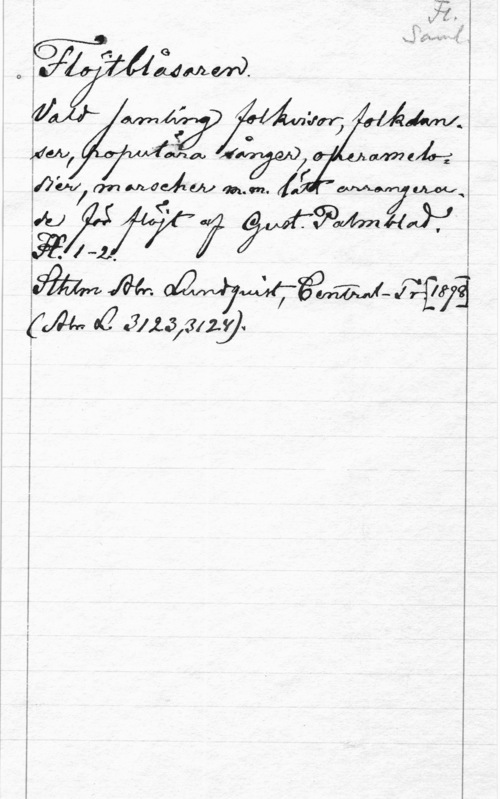 Fl.
Saml.
Flöjtblåsaren.
Vald samling folkvisor, folkdan-
ser, populära sånger, operamelo-
dier, marscher m.m. lätt arrangera-
de för flöjt af Gust. Palmblad.
H. 1-2.
Sthlm Abr. Lundquist, Central-Tr [1898]
(Abr L 3123,3124).